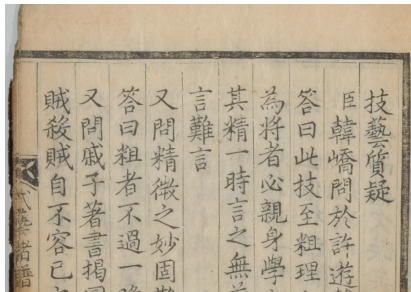 技藝質疑
臣韓嶠問於許遊
答曰此技至粗理
為將者必親身學
其精一時言之無
言難言
又問精微之妙固
答曰粗者不過一
又問戚子著書揭
賊殺賊自不容已
武藝諸譜